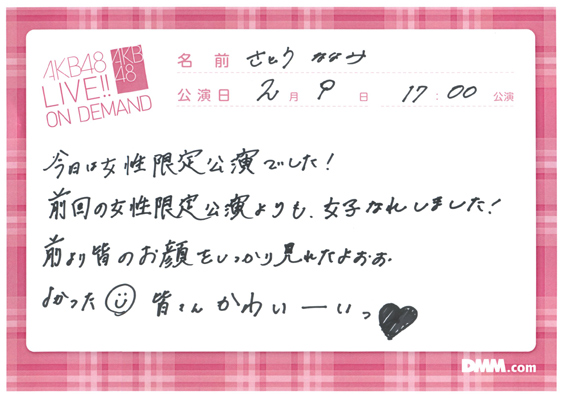 AKB48
LIVE!!
ON DEMAND
AKB
48
名前 さとう ななみ
公演日 2月9日 17:00 公演
今日は女性限定公演でした!
前回の女性限定公演よりも、女子なれしました!
前より皆のお顔をしっかり見れたよぉぉ.
よかった 皆さんかわいーいっ
DMM.com